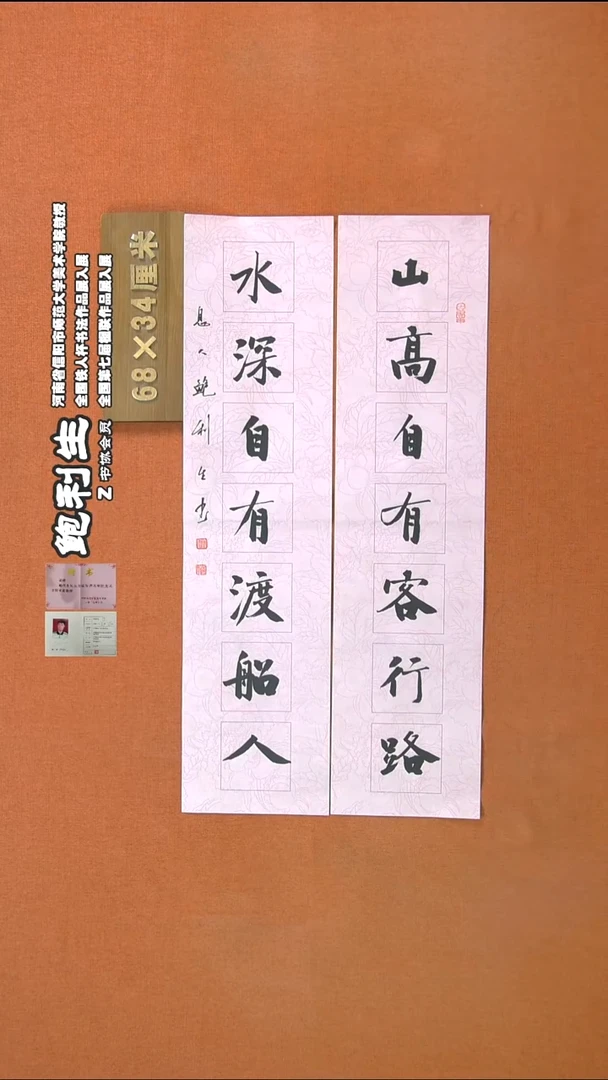 山高自有客行路
水深自有渡船人
息人鲍利生书
68×34厘米
河南省信阳市师范大学美术学院教授
全国铁人杯书法作品展入展
全国第七届楹联作品展入展
鲍利生
Z书协会员